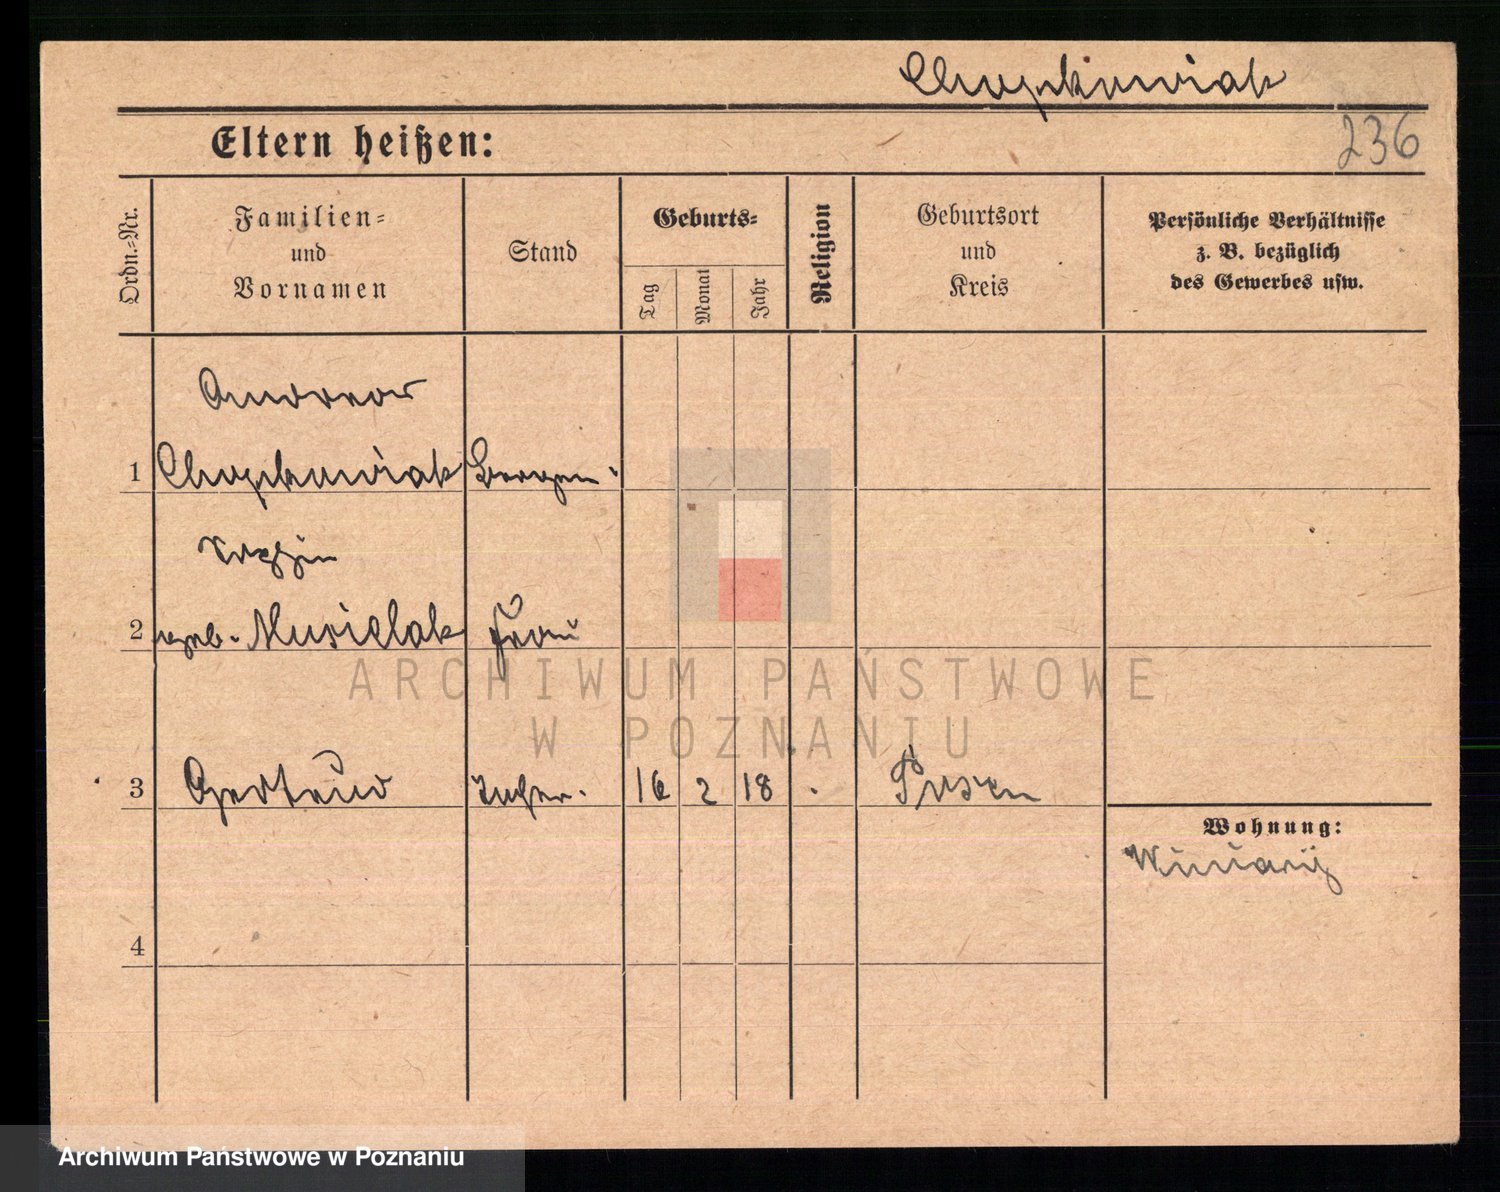 Chojckowiak
236
Eltern heißen:
Ordn.=Nr.
Familien=
und
Vornamen
Stand
Geburts=
Tag
Monat
Jahr
Religion
Geburtsort
und
Kreis
Persönliche Verhältnisse
z. B. bezüglich
des Gewerbes usw.
Andreas
1
2
geb. Musielak Frau
3 Gertrud 16 2 18 Posen
Wohnung:
Winiary
4
ARCHIWUM PAŃSTWOWE
W POZNANIU
Archiwum Państwowe w Poznaniu